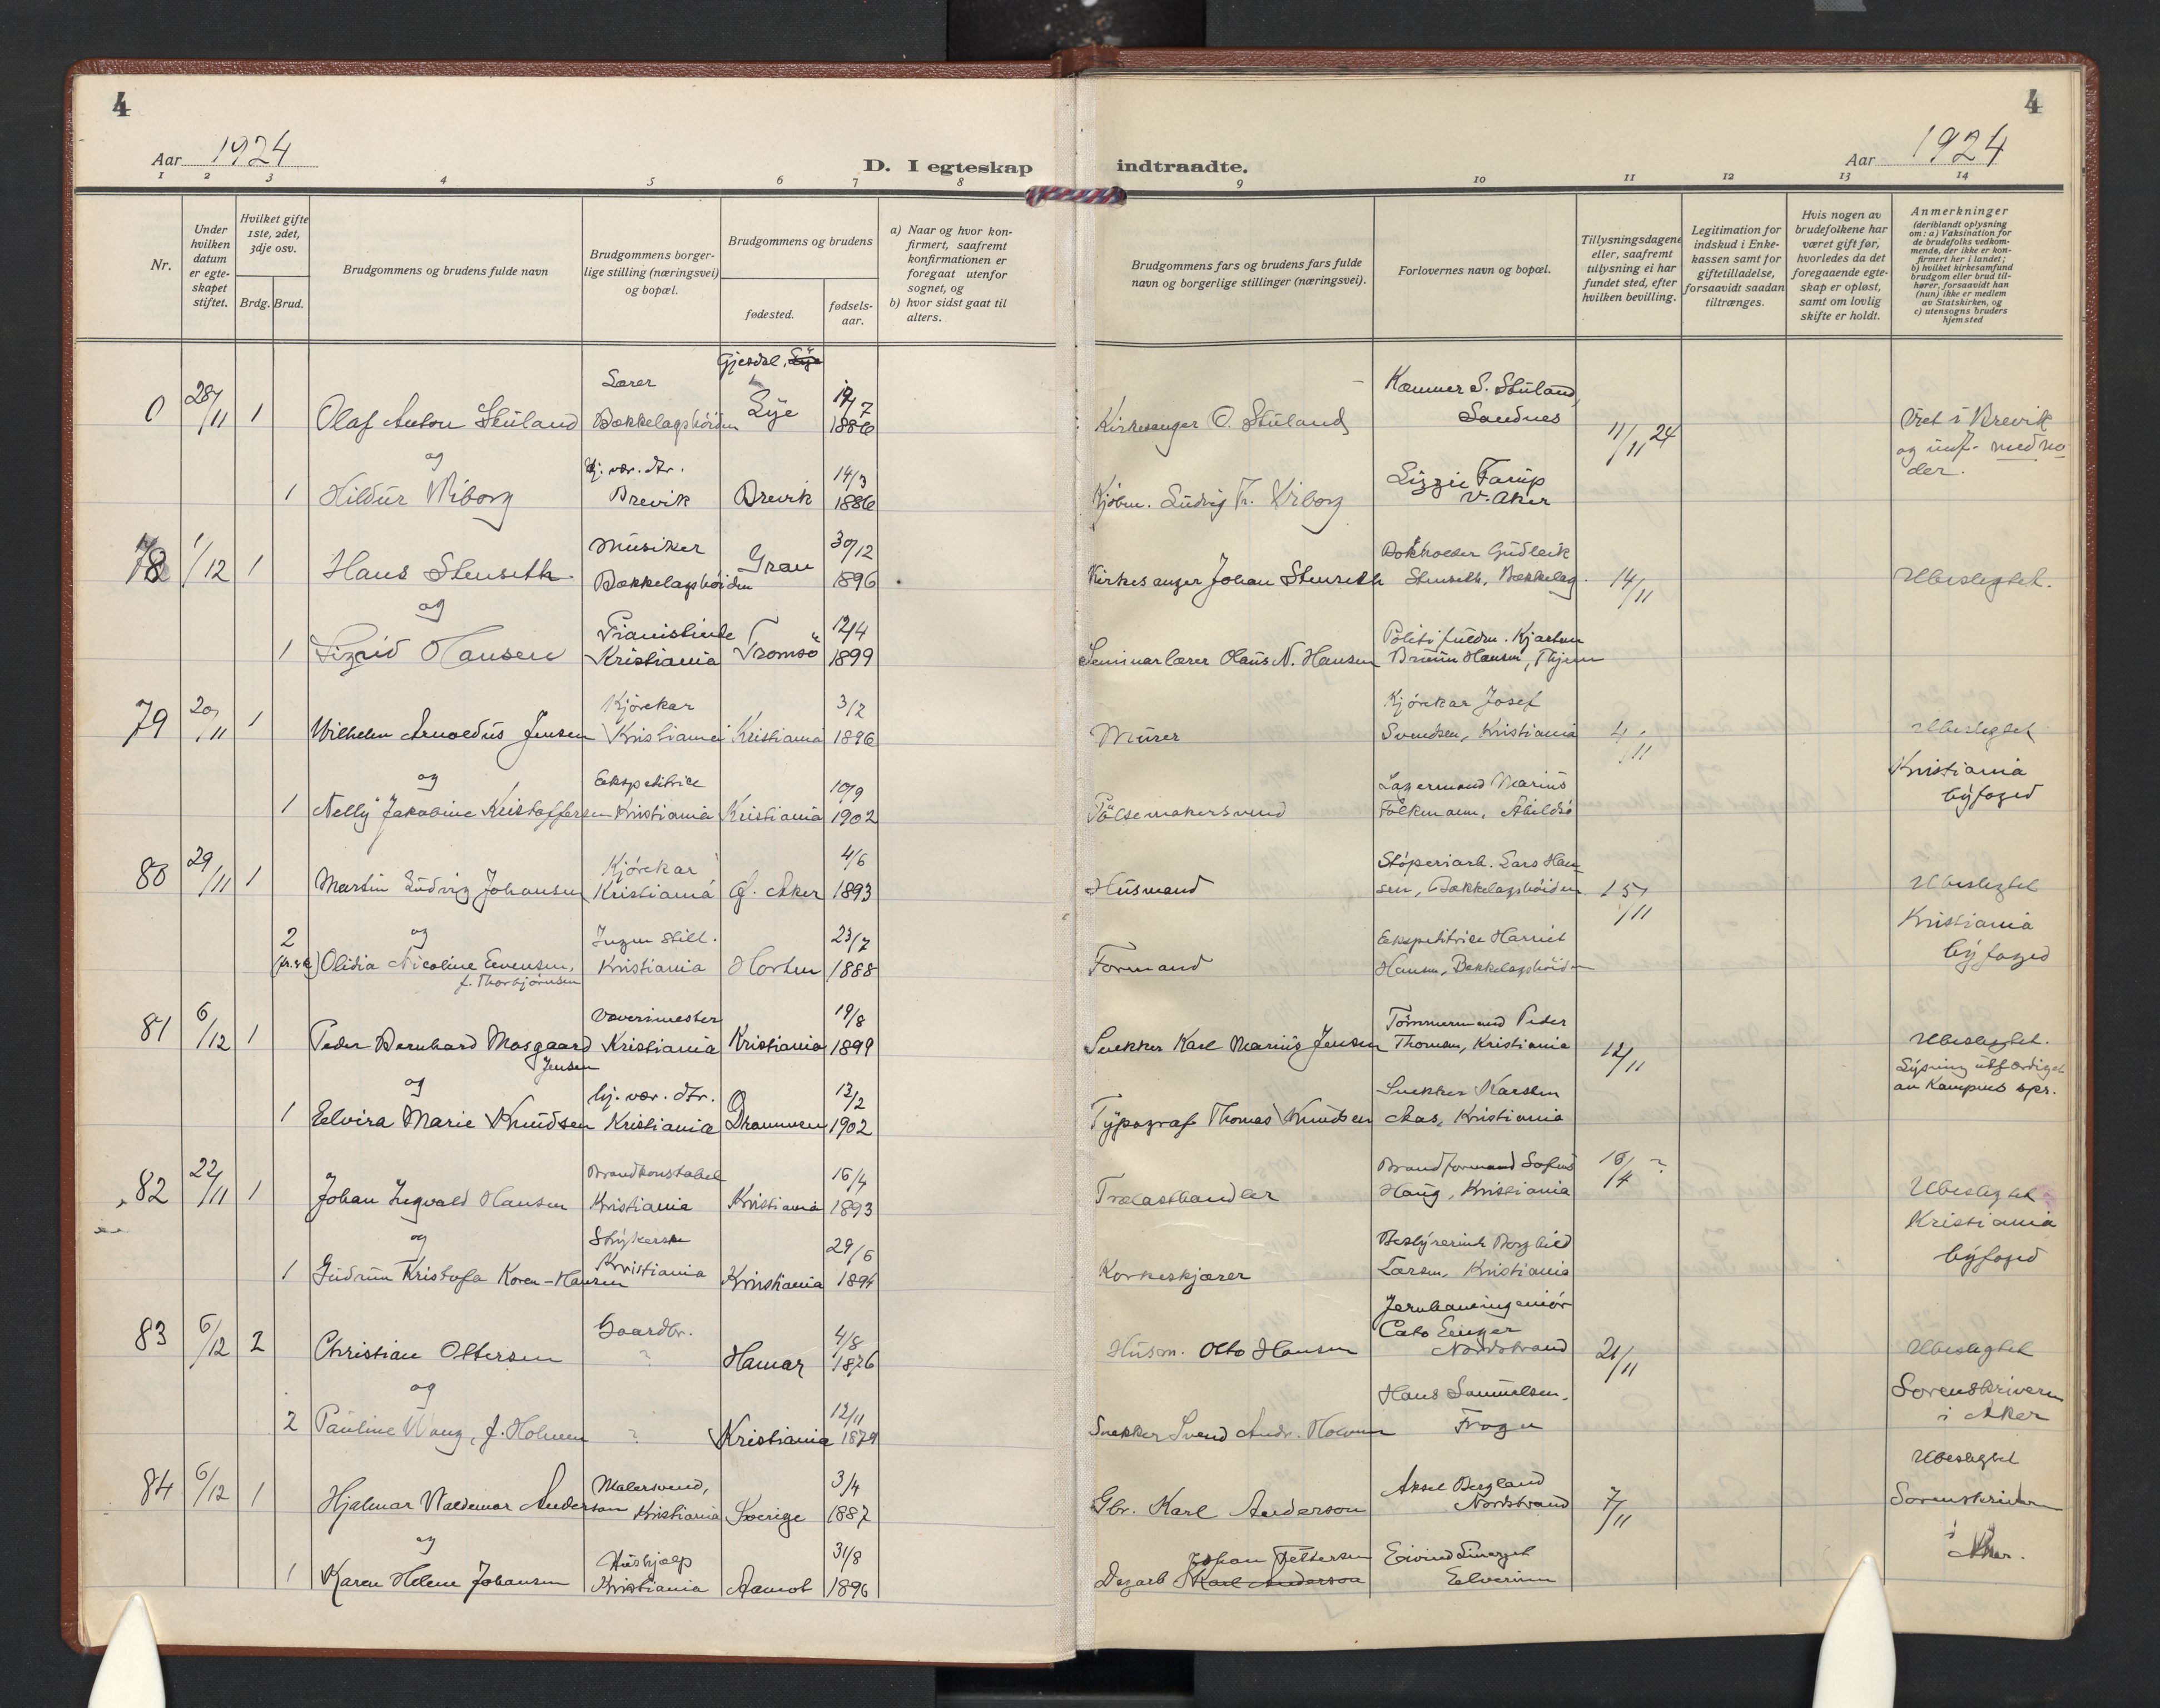 4
4
Aar 1924
D. I egteskap
indtraadte.
Aar 1924
1 2 3 4 5 6 7 8 9 10 11 12 13 14
Nr.
Under hvilken datum er egte-skapet stiftet.
Hvilket gifte 1ste, 2det, 3dje osv.
Brdg. Brud.
Brudgommens og brudens fulde navn
Brudgommens borger-lige stilling (næringsvei) og bopæl.
Brudgommens og brudens
fødested.
fødsels-aar.
a) Naar og hvor kon-firmert, saafremt konfirmationen er foregaat utenfor sognet, og
b) hvor sidst gaat til alters.
Brudgommens fars og brudens fars fulde navn og borgerlige stillinger (næringsvei).
Forlovernes navn og bopæl.
Tillysningsdagene eller, saafremt tillysning ei har fundet sted, efter hvilken bevilling.
Legitimation for indskud i Enke-kassen samt for giftetilladelse, forsaavidt saadan tiltrænges.
Hvis nogen av brudefolkene har været gift før, hvorledes da det foregaaende egte-skap er opløst, samt om lovlig skifte er holdt.
Anmerkninger (deriblandt oplysning om: a) Vaksination for de brudefolks vedkom-mende, der ikke er kon-firmert her i landet; b) hvilket kirkesamfund brudgom eller brud til-hører, forsaavidt han (hun) ikke er medlem av Statskirken, og c) utensogns bruders hjemsted
Gjesdal, Lye
0 28/11 1 Olaf Anton Stuland Lærer Bækkelagshöiden Lye 19/7 1886 Kirkesanger O. Stuland Kæmner S. Stuland, Sandnes 11/11 24 Viet i Brevik
og
1 Hildur Wiborg hj. vær. dtr. Brevik Brevik 14/3 1886 Kjöbm. Ludvig Fr. Wiborg Lizzie Farup V. Aker
78 1/12 1 Hans Stenseth Musiker Bækkelagshöiden Gran 30/12 1896 Kirkesanger Johan Stenseth Bokholder Gudleik Stenseth, Bækkelag. 14/11 Ubeslegtet.
og
1 Sigrid Hansen Pianistinde Kristiania Tromsö 12/4 1899 Seminarlærer Olaus N. Hansen Politifuldm. Kjartan Bruun Hansen,
79 20/11 1 Wilhelm Arnoldus Jensen Kjörekar Kristiania Kristiania 3/2 1896 Murer Kjörekar Josef Svendsen, Kristiania 4/11 Ubeslegtet
og
1 Nelly Jakobine Kristoffersen Ekspeditrice Kristiania Kristiania 10/9 1902 Pölsemakersvend Lagermand Marius Folkmann, Abildsö Kristiania byfoged
80 29/11 1 Martin Ludvig Johansen Kjörekar Kristiania Ö. Aker 4/6 1893 Husmand Stöperiarb. Lars Han-sen, Bækkelagshöiden 15/11 Ubeslegtet
og
2 (fr.sk.) Olidia Nicoline Evensen, f. Thorbjörnsen Ingen still. Kristiania Horten 23/7 1888 Formand Ekspeditrice Harriet Hansen, Bekkelagshöiden Kristiania byfoged
81 6/12 1 Peder Bernhard Mosgaard Jensen Væverimester Kristiania Kristiania 19/8 1899 Snekker Karl Marius Jensen Tömmermand Peder Thomsen, Kristiania 12/11 Ubeslegtet.
og
1 Elvira Marie Knudsen hj. vær. dtr. Kristiania Drammen 13/2 1902 Typograf Thomas Knudsen Snekker Karsten Aas, Kristiania Lysning utfærdiget av Kampens spr.
82 22/11 1 Johan Ingvald Hansen Brandkonstabel Kristiania Kristiania 16/4 1893 Trælasthandler Brandformand Sofus Haug, Kristiania 16/4 ? Ubeslegtet
og
1 Gudrun Kristofa Koren-Hansen Strykerske Kristiania Kristiania 29/6 1894 Korkeskjærer Bestyrerinde Borghild Larsen, Kristiania Kristiania byfoged
83 6/12 2 Christian Ottersen Gaardbr. ? Hamar 4/8 1876 Husm. Otto Hansen Jernbaneingeniör Cato Enger Nordstrand 21/11 Ubeslegtet
og
2 Pauline Wang, f. Holmen ? Kristiania 12/11 1879 Snekker Svend Andr. Holmen Hans Samuelsen, Frogn Sorenskriveren i Aker
84 6/12 1 Hjalmar Waldemar Anderson Malersvend, Kristiania Sverige 3/4 1887 Gbr. Karl Anderson Aksel Bergland Nordstrand 7/11 Ubeslegtet
og
1 Karen Helene Johansen Hushjælp Kristiania Aamot 31/8 1896 Dagarb Johan Pettersen Karl Anderson Eivind Elverum Sorenskriver i Aker.